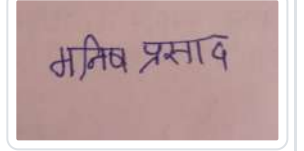 मनिष प्रसाद